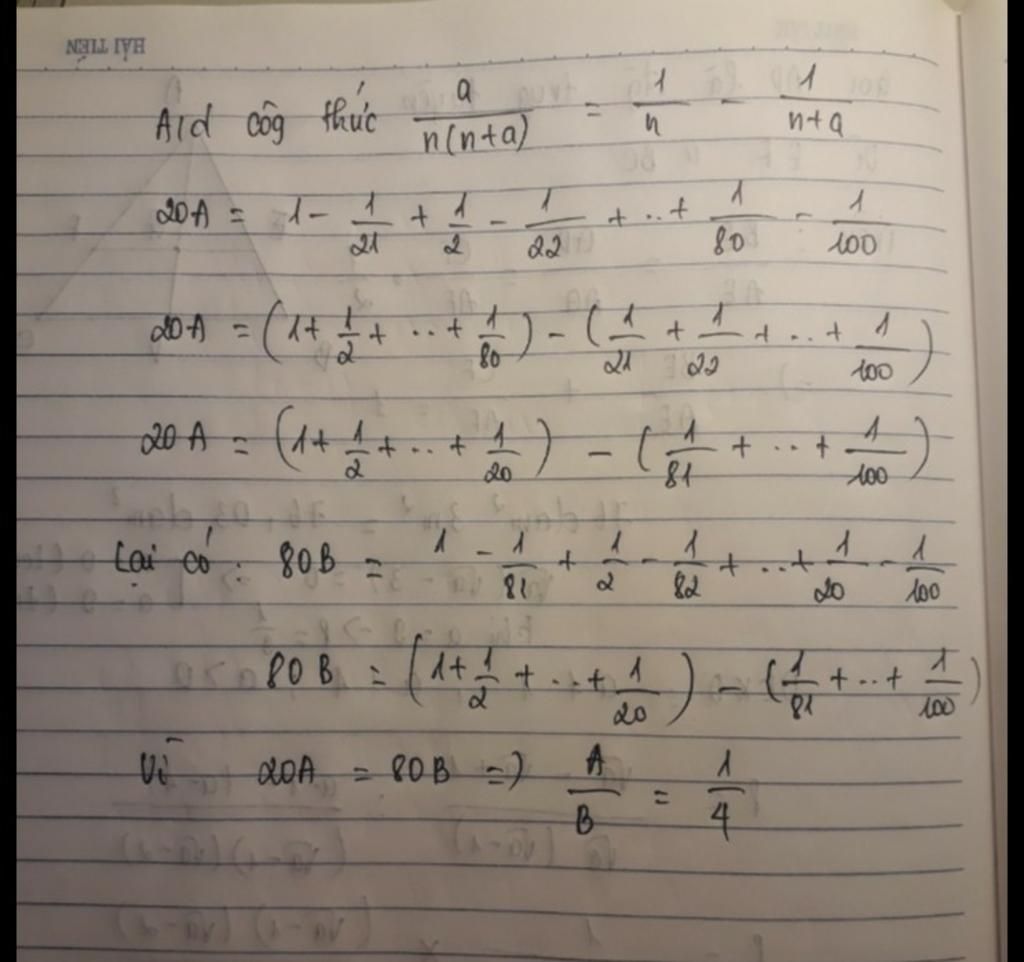 HẢI TIẾN
A/d côg thức a/n(n+a) = 1/n - 1/n+a
20A = 1 - 1/21 + 1/2 - 1/22 + .. + 1/80 - 1/100
20A = (1 + 1/2 + .. + 1/80) - (1/21 + 1/22 + .. + 1/100)
20A = (1 + 1/2 + .. + 1/20) - (1/81 + .. + 1/100)
Lại có : 80B = 1 - 1/81 + 1/2 - 1/82 + .. + 1/20 - 1/100
80B = (1 + 1/2 + .. + 1/20) - (1/81 + .. + 1/100)
Vì 20A = 80B => A/B = 1/4